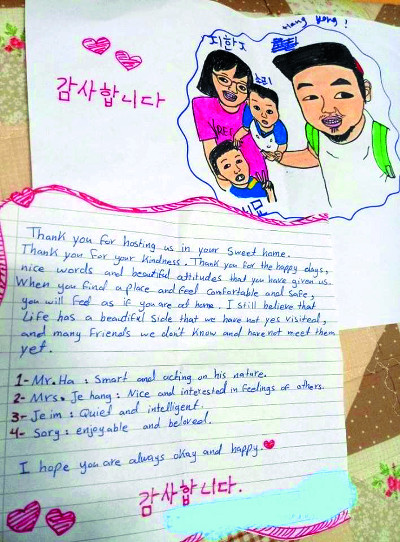 Hang Kong!
지한지
소리
감사합니다
Thank you for hosting us in your sweet home.
Thank you for your kindness. Thank you for the happy days,
nice words and beautiful attitudes that you have given us.
When you find a place and feel comfortable and safe,
you will feel as if you are at home. I still believe that
Life has a beautiful side that we have not yes visited,
and many friends we don't know and have not meet them
yet.
1- Mr. Ha : Smart and acting on his nature.
2- Mrs. Je hang : Nice and interested in feelings of others.
3- Je im : Quiet and intelligent.
4- Sory : enjoyable and beloved.
I hope you are always okay and happy.
감사합니다.